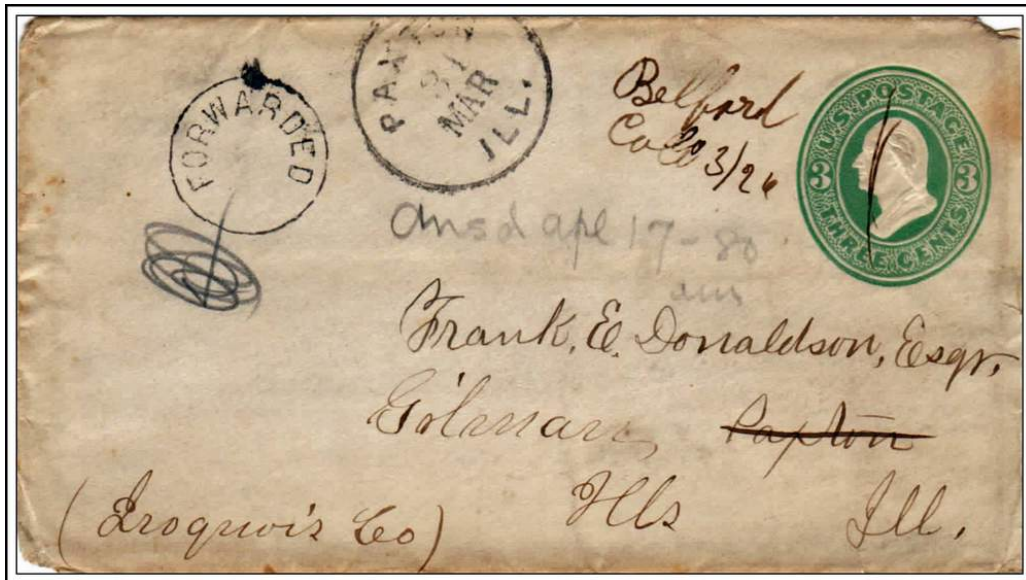 FORWARDED
PAXTON
31
MAR
ILL.
Belford
Colo 3/26
U.S. POSTAGE
3 3
THREE CENTS
Ansd apl 17-80
ans
Frank, E. Donaldson, Esqr,
Gilman, Paxton
Ills Ill.
(Iroquois Co)